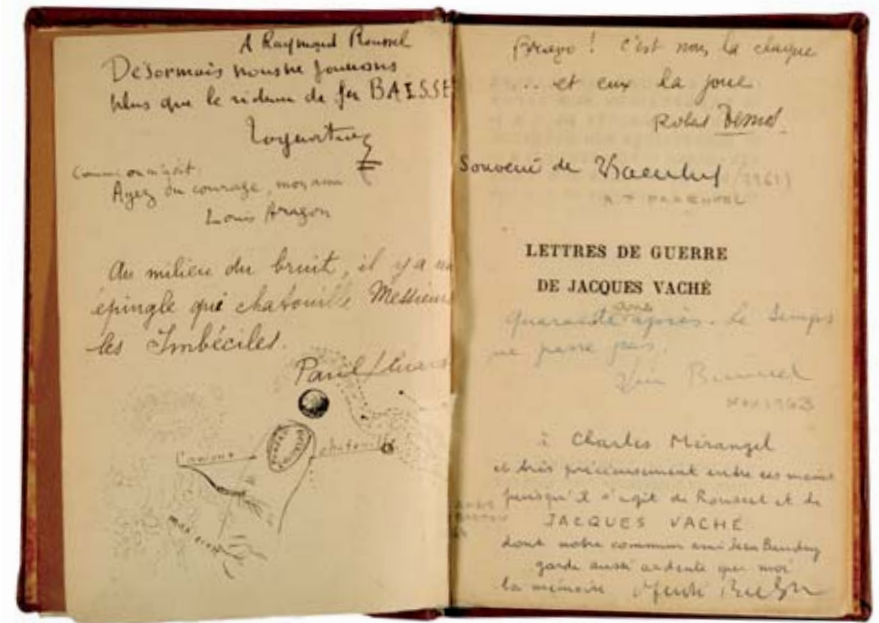 A Raymond Roussel
Désormais nous ne jouerons
plus que le rideau de fer BAISSÉ
Comme on disait:
Ayez du courage, mon ami
Louis Aragon
Au milieu du bruit, il y a une
épingle qui chatouille Messieurs
les Imbéciles.
Paul Eluard
l'amour
chatouille
Bravo ! c'est nous la claque
... et eux la joue
Robert Desnos.
Souvenir de
LETTRES DE GUERRE
DE JACQUES VACHÉ
Quarante ans après. Le temps
ne passe pas.
NOV 1963
à Charles Mérangel
et très précieusement entre ses mains
puisqu'il s'agit de Roussel et de
JACQUES VACHÉ
dont notre commun ami Jean
garde aussi ardente que moi
la mémoire André Breton